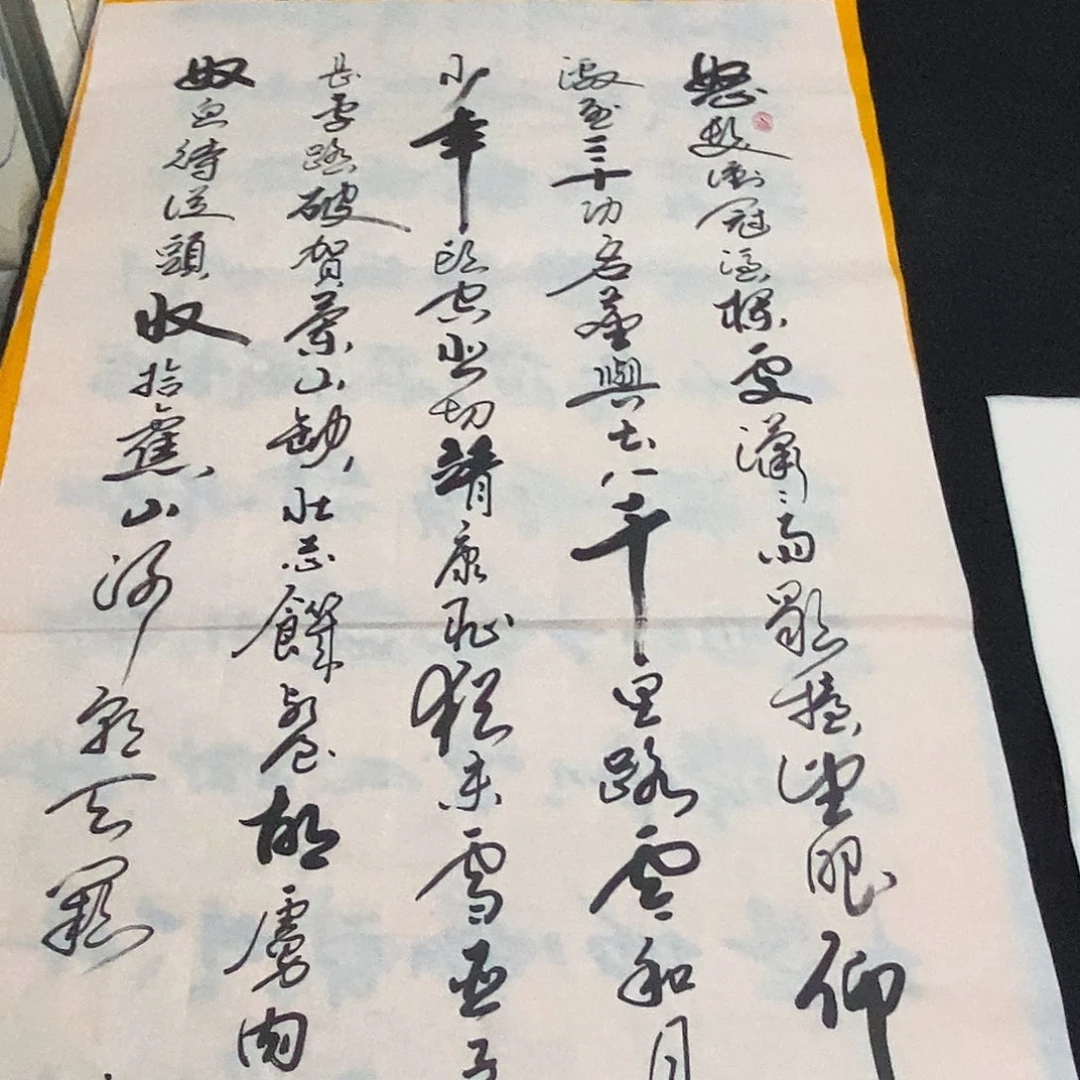 怒髮衝冠憑欄處瀟〻雨歇擡望眼仰
激烈三十功名塵與土八千里路雲和月
少年頭空悲切靖康恥猶未雪臣子
長車踏破賀蘭山缺壯志饑餐胡虜肉
奴血待從頭收拾舊山河朝天闕